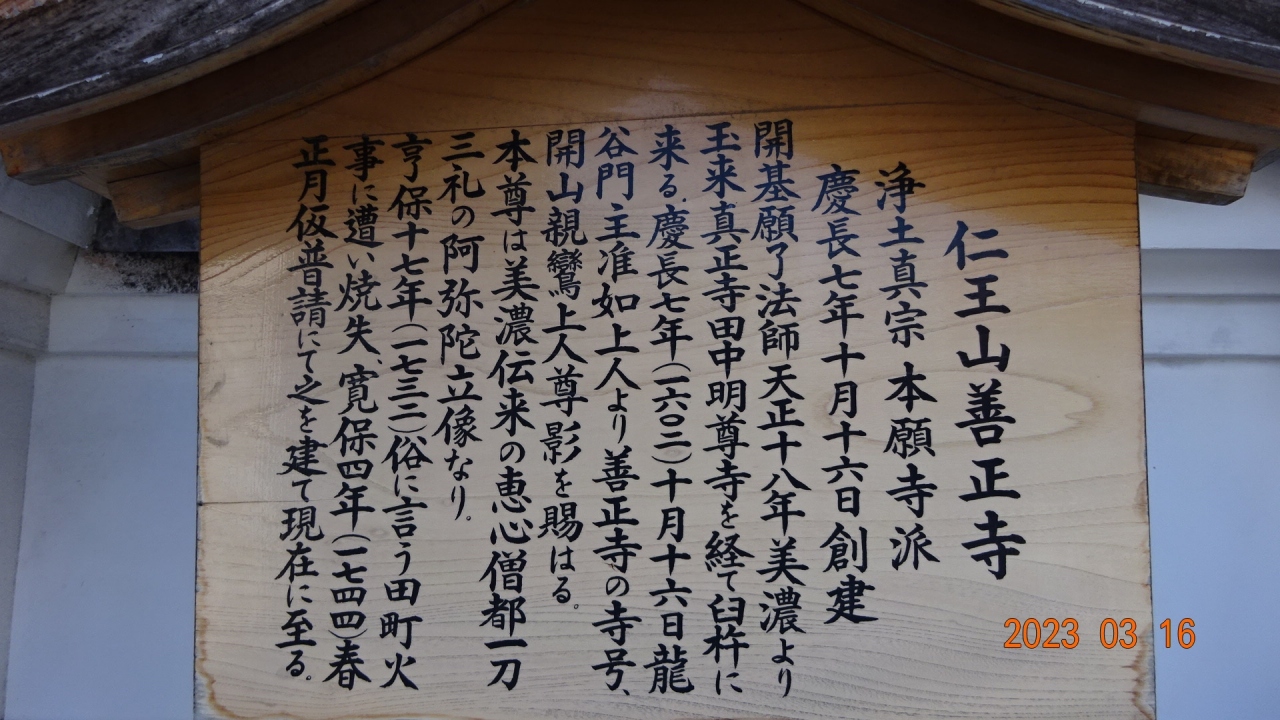 仁王山善正寺
浄土真宗 本願寺派
慶長七年十月十六日創建
開基願了法師天正十八年美濃より
玉来真正寺田中明尊寺を経て臼杵に
来る。慶長七年(一六〇二)十月十六日龍
谷門主准如上人より善正寺の寺号、
開山親鸞上人尊影を賜はる。
本尊は美濃伝来の恵心僧都一刀
三礼の阿弥陀立像なり。
亨保十七年(一七三二)俗に言う田町火
事に遭い焼失、寛保四年(一七四四)春
正月仮普請にて之を建て現在に至る。
2023 03 16